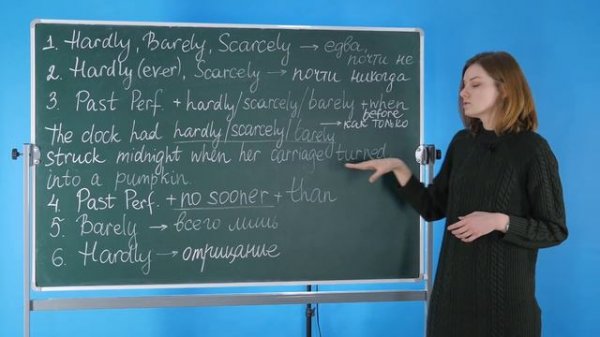 1. Hardly, Barely, Scarcely → едва,
почти не
2. Hardly (ever), Scarcely → почти никогда
3. Past Perf. + hardly/scarcely/barely + when
before
→ как только
The clock had hardly/scarcely/barely
struck midnight when her carriage turned
into a pumpkin.
4. Past Perf. + no sooner + than
5. Barely → всего лишь
6. Hardly → отрицание